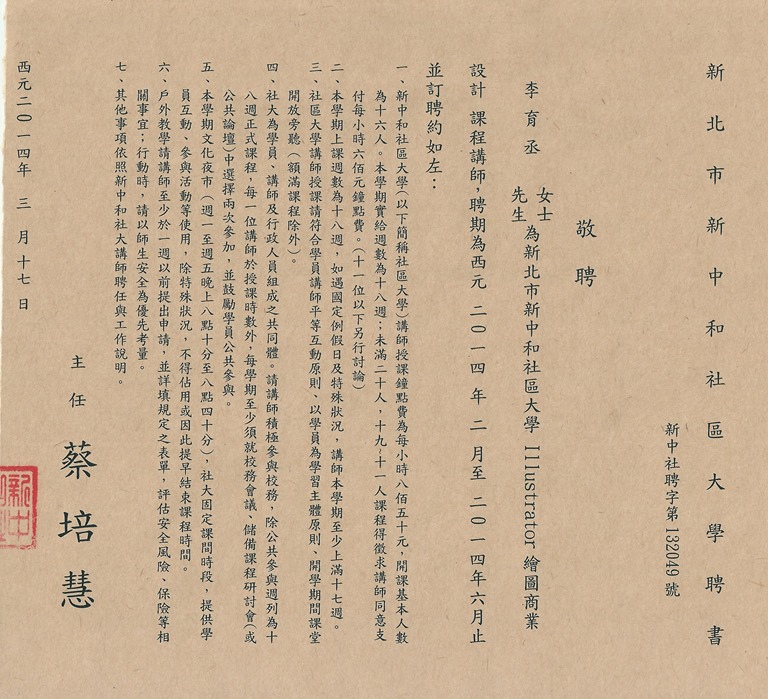 新北市新中和社區大學聘書
新中社聘字第 132049 號
敬聘
李育丞 女士
先生 為新北市新中和社區大學 Illustrator 繪圖商業
設計 課程講師,聘期為西元 二○一四 年 二 月至 二○一四年六月止
並訂聘約如左:
一、新中和社區大學(以下簡稱社區大學)講師授課鐘點費為每小時八佰五十元,開課基本人數
為十六人。本學期實給週數為十八週;未滿二十人,十九~十一人課程得徵求講師同意支
付每小時六佰元鐘點費。(十一位以下另行討論)
二、本學期上課週數為十八週,如遇國定例假日及特殊狀況,講師本學期至少上滿十七週。
三、社區大學講師授課請符合學員講師平等互動原則、以學員為學習主體原則、開學期間課堂
開放旁聽(額滿課程除外)。
四、社大為學員、講師及行政人員組成之共同體。請講師積極參與校務,除公共參與週列為十
八週正式課程,每一位講師於授課時數外,每學期至少須就校務會議、儲備課程研討會(或
公共論壇)中選擇兩次參加,並鼓勵學員公共參與。
五、本學期文化夜市(週一至週五晚上八點十分至八點四十分),社大固定課間時段,提供學
員互動、參與活動等使用,除特殊狀況,不得佔用或因此提早結束課程時間。
六、戶外教學請講師至少於一週以前提出申請,並詳填規定之表單,評估安全風險、保險等相
關事宜;行動時,請以師生安全為優先考量。
七、其他事項依照新中和社大講師聘任與工作說明。
主任 蔡培慧
西元二○一四年 三 月十七 日
新中